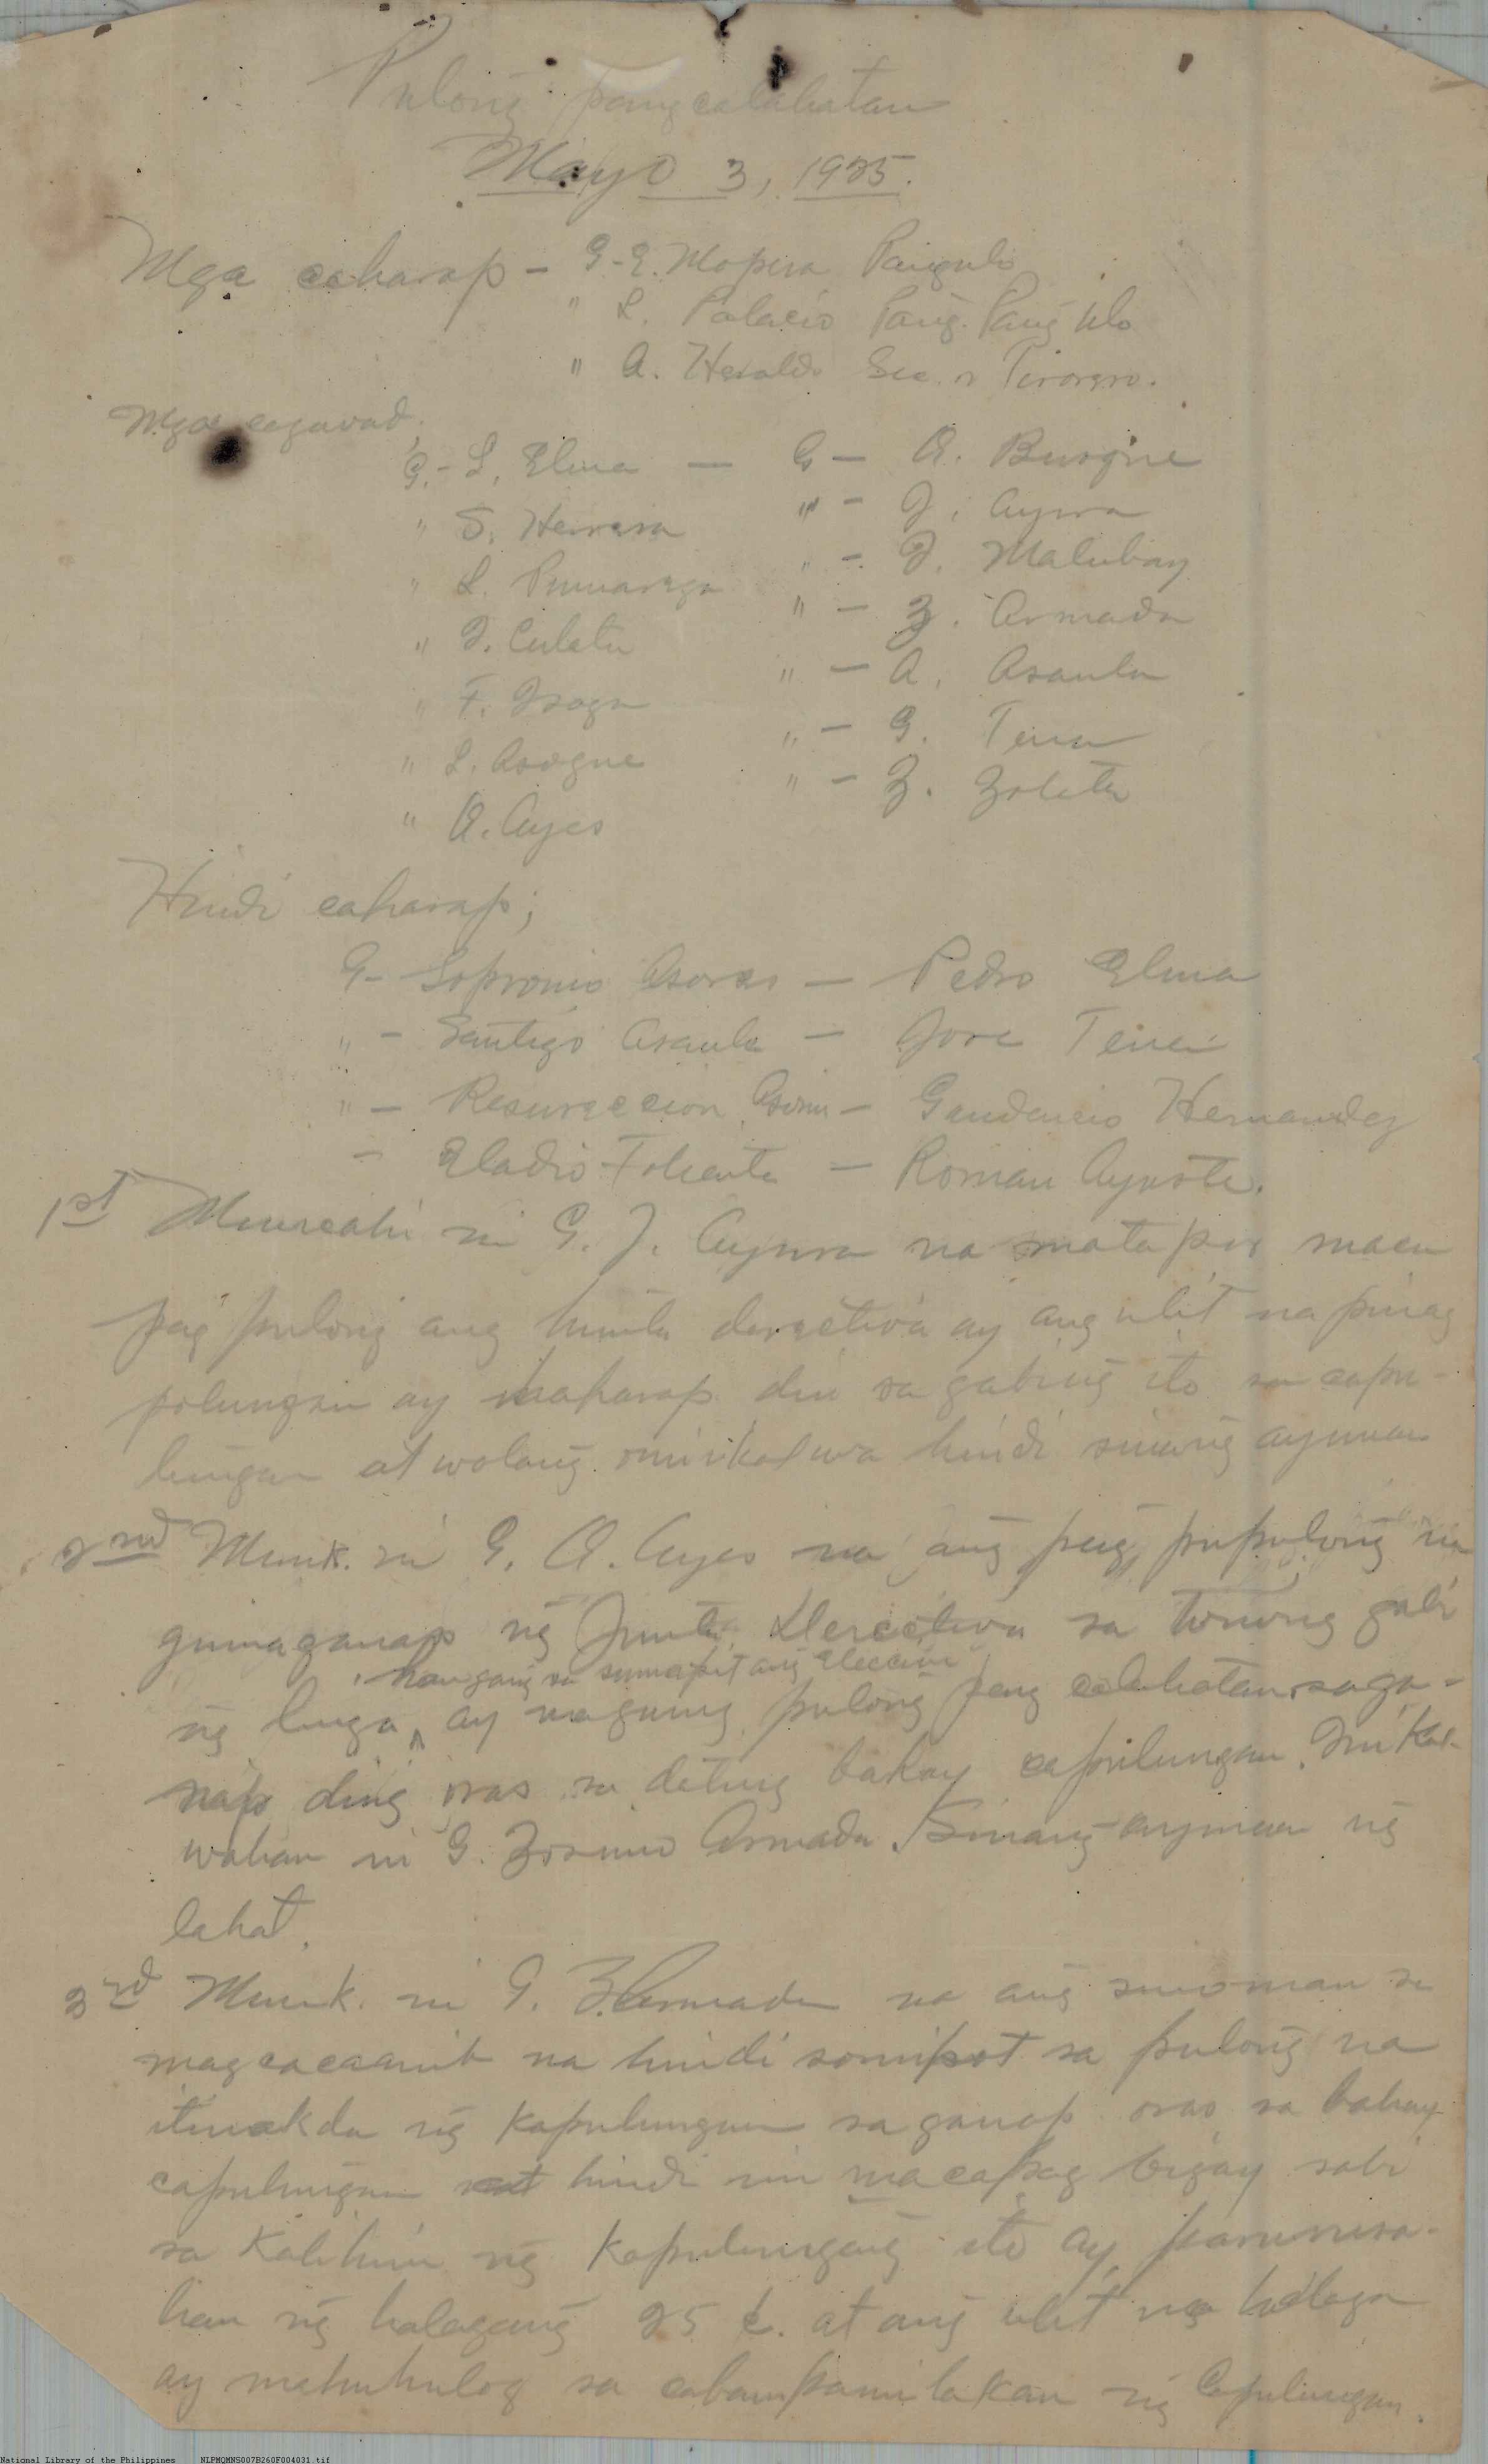 Pulong pangcalahatan
Mayo 3, 1925.
Mga caharap - G-E. Mopera Pangulo
" L. Palacio Pang. Pang ulo
" A. Heraldo Sec. n Tesorero.
Mga cagavad.
G.- L. Elma — G — A. Burgne
" S. Herrera " - J. Aynra
" L. " - J. Malubay
" J. Culeta " — Z. Armada
" F. Isaga " — A. Asaula
" L. Asogue " — G. Tena
" A. Ayes " — Z. Zoleta
Hindi caharap;
G- Sopronio Asores — Pedro Elma
" - Santigo Asaula — Jose Tena
" — Resureccion — Gaudencio Hernandez
- Eladio Foleanta — Roman Aynste.
1st Muncahi ni G. J. Aynra na matapos macu
pag pulong ang hunta derectiva ay ang ulit na pinag
polungan ay ihaharap din sa gabing ito sa capu-
lungan at walang hindi sinang ayunan
2nd Munk. ni G. A. Ayes na ang pag pupulong na
gumaganap ng Junta Derectiva sa toning gabi
hangang sa sumapit ang eleccion
ng linga ay maguing pulong pang calahatan saga-
nap ding oras sa diting bahay capulungan. Inikal-
wahan ni G. Zosimo Armada. Sinang-ayunan ng
lahat.
3rd Munk. ni G. Z. Armada na ang sinoman sa
magcacaanib na hindi somipot sa pulong na
itinakda ng kapulungan sa ganap oras sa bahay
capulungan at hindi nin macapag bigay sabi
sa Kalihim ng kapulungang ito ay parurusa-
han ng halagang 25 ¢. at ang ulit na halaga
ay mahuhulog sa cabampamilakan ng Capulungan.
National Library of the Philippines NLPMQMNS007B260F004031.tif